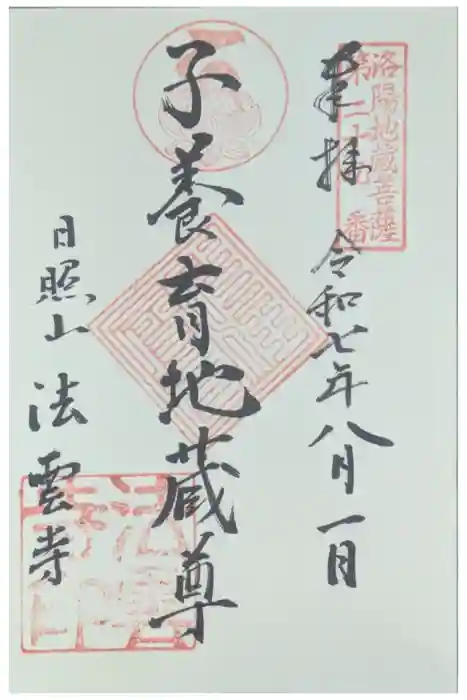 洛陽地蔵菩薩
第二十 番
奉拝 令和七年八月一日
子養育地蔵尊
日照山 法雲寺